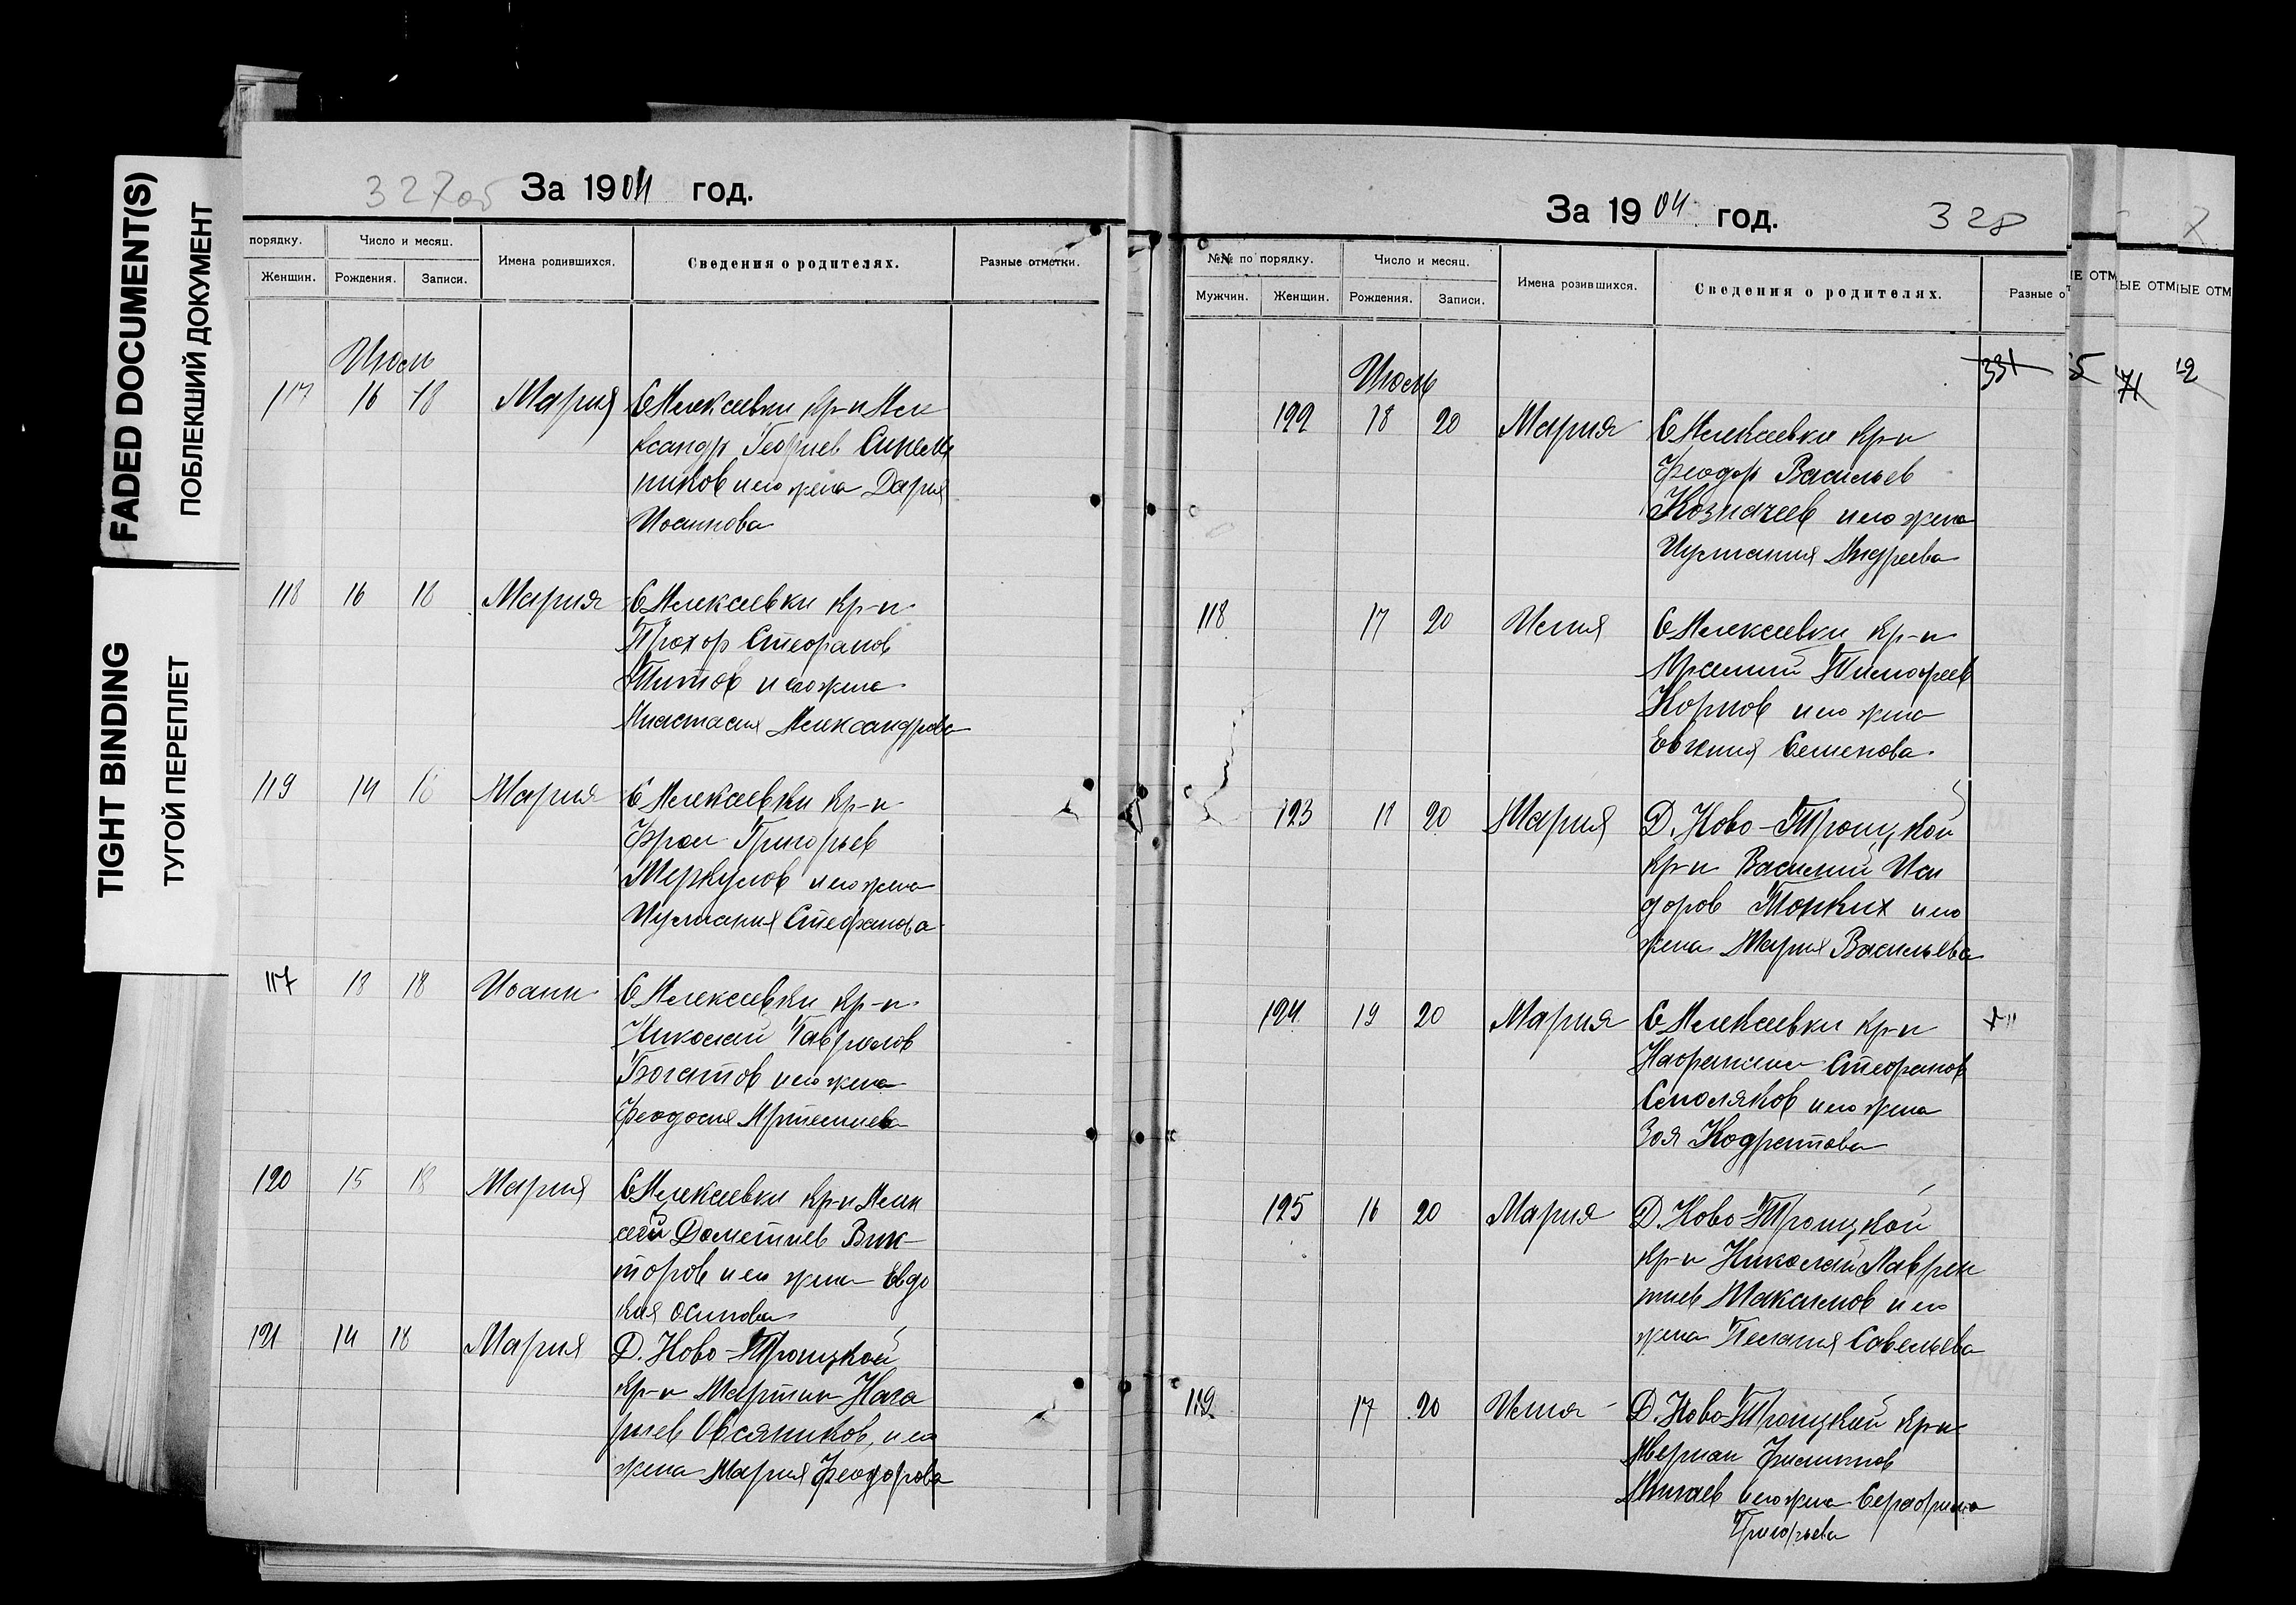 FADED DOCUMENT(S)
ПОБЛЕКШИЙ ДОКУМЕНТ
TIGHT BINDING
ТУГОЙ ПЕРЕПЛЕТ
327об За 1904 год.
порядку. Число и месяц. Имена родившихся. Сведения о родителях. Разные отметки.
Женщин. Рождения. Записи.
Июль
117 16 18 Мария С Алексеевки кр-н Але
ксандр Георгиев Синель
ников и его жена Дария
Иоаннова
118 16 18 Мария С Алексеевки кр-н
Прохор Стефанов
Титов и его жена
Анастасия Александрова
119 14 18 Мария С Алексеевки кр-н
Фрол Григорьев
Меркулов и его жена
Иулиания Стефанова
117 18 18 Иоанн С Алексеевки кр-н
Николай Гаврилов
Богатов и его жена
Феодосия Артемиева
120 15 18 Мария С Алексеевки кр-н Але
ксей Дометиев Вик-
торов и его жена Евдо
кия Осипова
121 14 18 Мария Д. Ново-Троицкой
кр-н Мартин Наза
риев Овсяников, и его
жена Мария Феодорова
За 1904 год. 328
№№ по порядку. Число и месяц. Имена розившихся. Сведения о родителях. Разные о
Мужчин. Женщин. Рождения. Записи.
ЫЕ ОТМ
ЫЕ ОТМ
331
5
71
Июль
122 18 20 Мария С Алексеевки кр-н
Феодор Васильев
Козначеев и его жена
Иулиания Андреева
118 17 20 Илия С Алексеевки кр-н
Тимофеев
Корнов и его жена
Евгения Семенова.
123 11 20 Мария Д. Ново-Троицкой
кр-н Василий Иси
доров Тонких и его
жена Мария Васильева
124 19 20 Мария С Алексеевки кр-н
Стефанов
Смоляков и его жена
Зоя Кодратова
125 16 20 Мария Д. Ново-Троицкой
кр-н Николай Лаврен
тиев Максимов и его
жена Пелагия Савельева
119 17 20 Илия Д. Ново-Троицкой кр-н
Аверкий Филиппов
и его жена Серафима
Григорьева